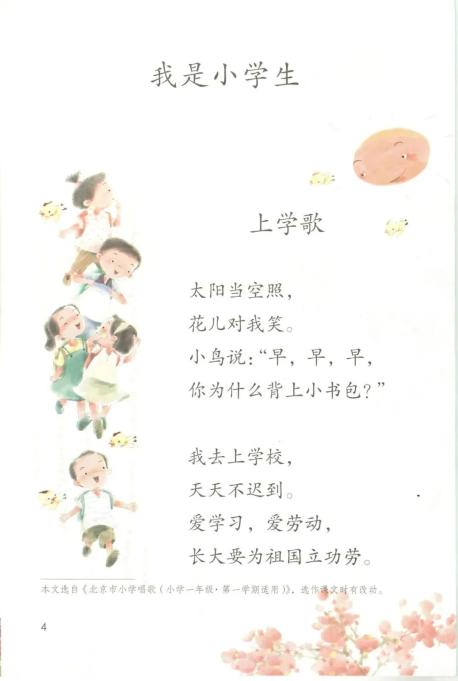 我是小学生
上学歌
太阳当空照，
花儿对我笑。
小鸟说：“早，早，早，
你为什么背上小书包？”
我去上学校，
天天不迟到。
爱学习，爱劳动，
长大要为祖国立功劳。
本文选自《北京市小学唱歌（小学一年级·第一学期适用）》，选作课文时有改动。
4